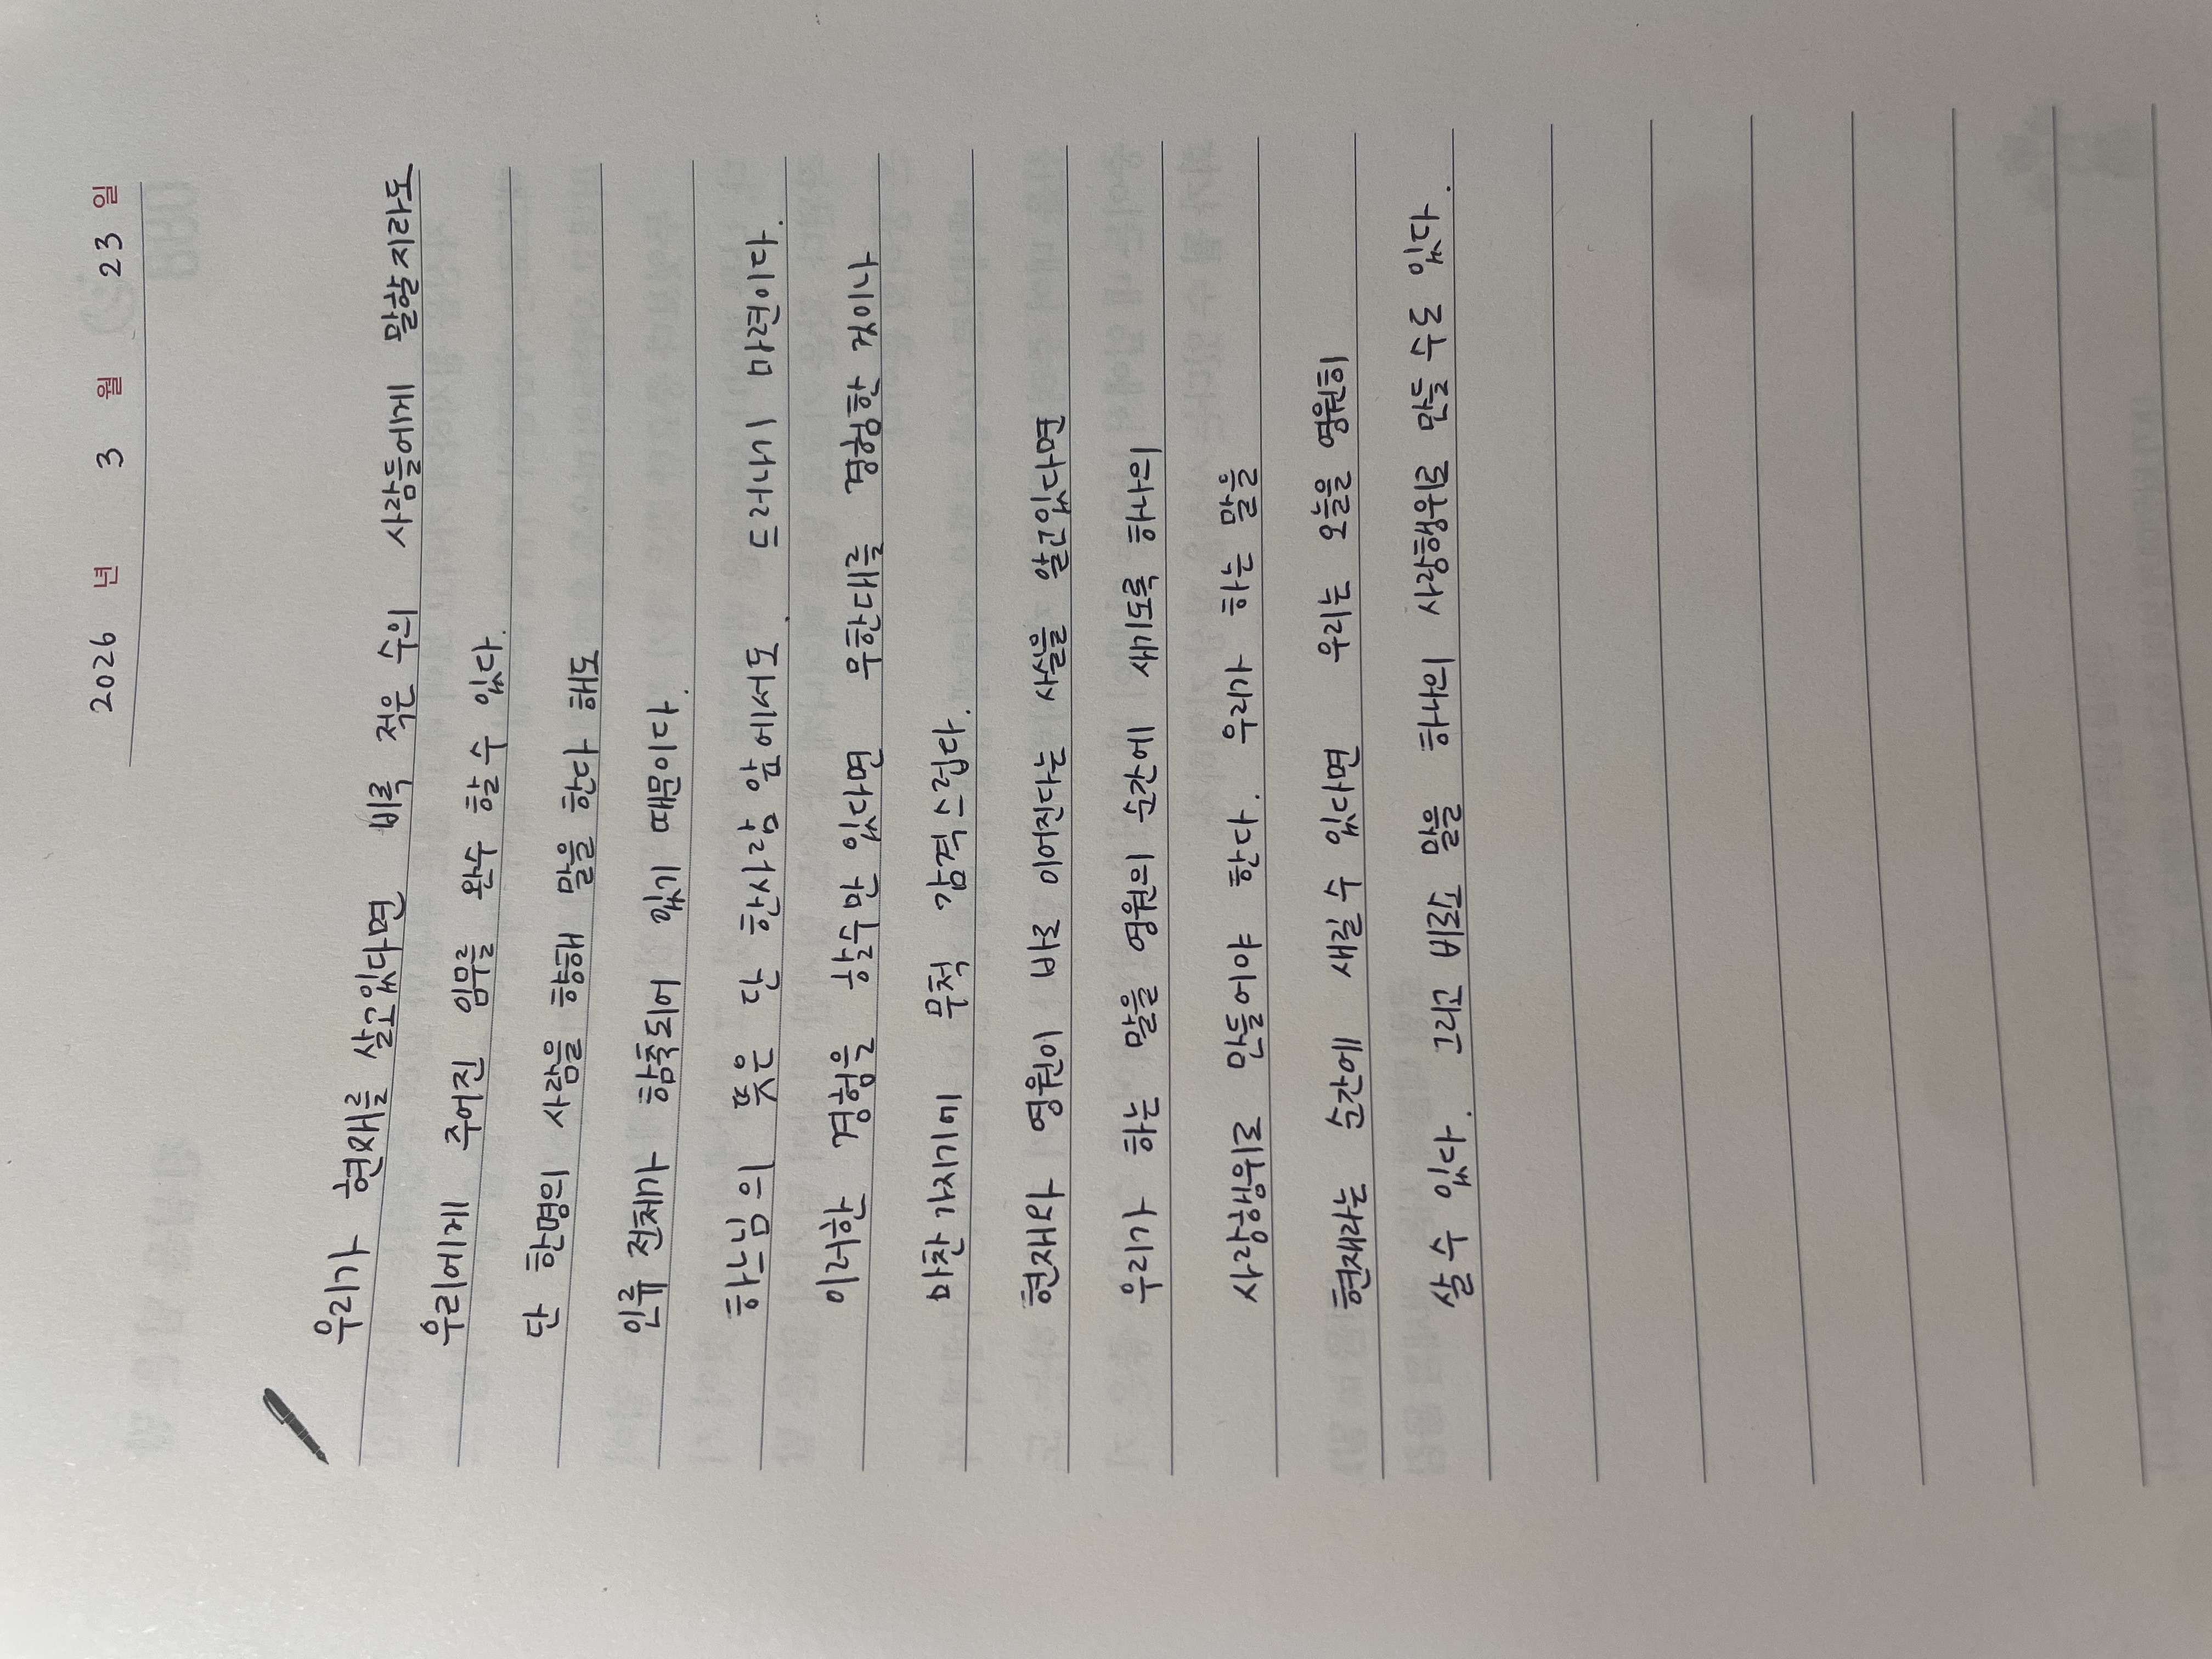 2026 년 3 월 23 일
우리가 현재를 살고있다면 비록 적은 수의 사람들에게 말할지라도
우리에게 주어진 임무를 완수 할 수 있다.
단 한명의 사람을 향해 말을 한다 해도
인류 전체가 함축되어 있기 때문이다.
하느님의 뜻은 단 한사람 앞에서도 드러나기 마련이다.
이러한 경험을 할수만 있다면 무한대를 경험한 것이나
마찬가지기에 무척 감격스럽다.
현재와 영원이 바로 이어진다는 사실을 알고있다면
우리가 하는 말을 영원의 순간에 새기도록 하나의
사랑행위로 만들어야 한다. 우리가 하는 말을
현재라는 순간에 새길 수 있다면 우리는 오늘을 영원히
살 수 있다. 그리고 비로소 말을 하나의 사랑행위로 만들 수도 있다.